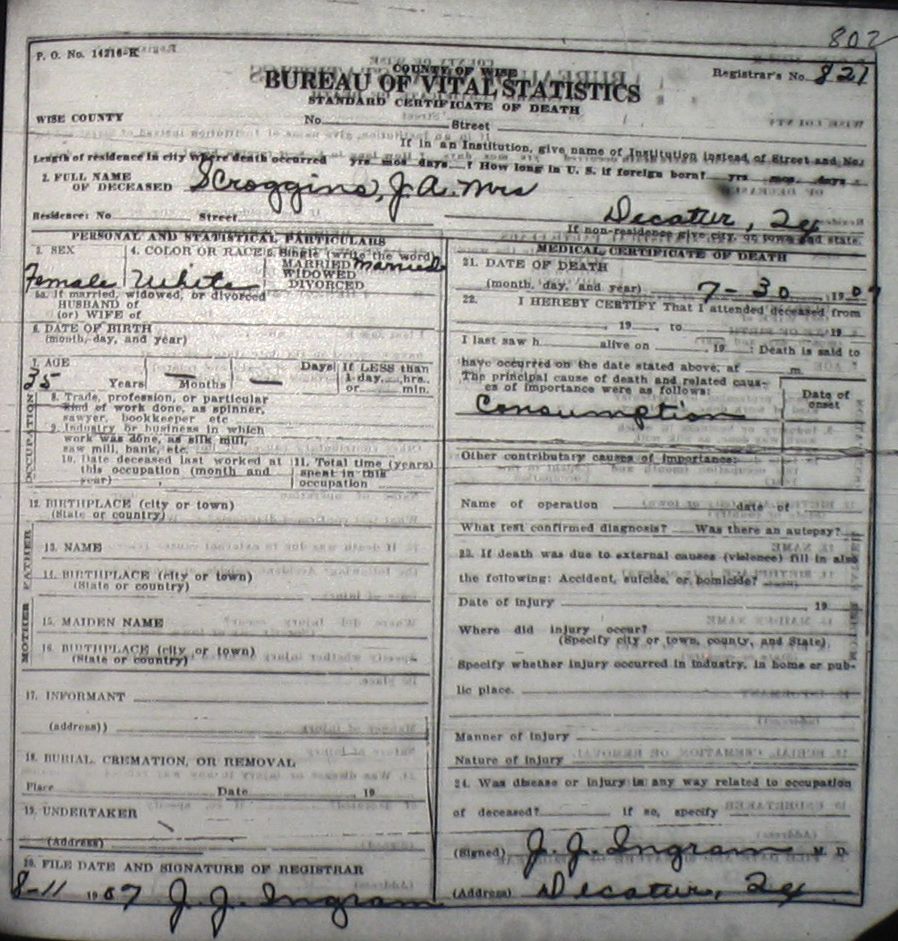 802
P. O. No. 14216-K
COUNTY OF WISE
Registrar's No. 821
BUREAU OF VITAL STATISTICS
STANDARD CERTIFICATE OF DEATH
WISE COUNTY No. Street
If in an Institution, give name of Institution instead of Street and No.
Length of residence in city where death occurred yrs mos days ? How long in U. S. if foreign born? yrs mos days
2. FULL NAME OF DECEASED Scroggins, J. A. Mrs
Residence: No. Street Decatur, Tex
If non-residence give city, or town and state.
PERSONAL AND STATISTICAL PARTICULARS
3. SEX 4. COLOR OR RACE 5. Single (write the word)
MARRIED Married
WIDOWED
DIVORCED
Female White
5a. If married, widowed, or divorced
HUSBAND of
(or) WIFE of
6. DATE OF BIRTH
(month, day, and year)
7. AGE
35 Years — Months — Days If LESS than 1 day, hrs. or min.
OCCUPATION
8. Trade, profession, or particular
kind of work done, as spinner,
sawyer, bookkeeper etc
9. Industry or business in which
work was done, as silk mill,
saw mill, bank, etc.
10. Date deceased last worked at this occupation (month and year)
11. Total time (years) spent in this occupation
12. BIRTHPLACE (city or town)
(State or country)
FATHER
13. NAME
14. BIRTHPLACE (city or town)
(State or country)
MOTHER
15. MAIDEN NAME
16. BIRTHPLACE (city or town)
(State or country)
17. INFORMANT
(address))
18. BURIAL, CREMATION, OR REMOVAL
Place Date 19
19. UNDERTAKER
(Address)
20. FILE DATE AND SIGNATURE OF REGISTRAR
8-11 1907 J. J. Ingram
MEDICAL CERTIFICATE OF DEATH
21. DATE OF DEATH
(month, day, and year) 7-30, 1907
22. I HEREBY CERTIFY That I attended deceased from
, 19 , to 19
I last saw h alive on , 19 : Death is said to
have occurred on the date stated above, at m.
The principal cause of death and related causes of importance were as follows:
Date of onset
Consumption
Other contributary causes of importance:
Name of operation date of
What test confirmed diagnosis? Was there an autopsy?
23. If death was due to external causes (violence) fill in also
the following: Accident, suicide, or homicide?
Date of injury , 19
Where did injury occur?
(Specify city or town, county, and State)
Specify whether injury occurred in industry, in home or pub-
lic place.
Manner of injury
Nature of injury
24. Was disease or injury in any way related to occupation
of deceased? if so, specify
(Signed) J. J. Ingram M. D.
(Address) Decatur, Tex